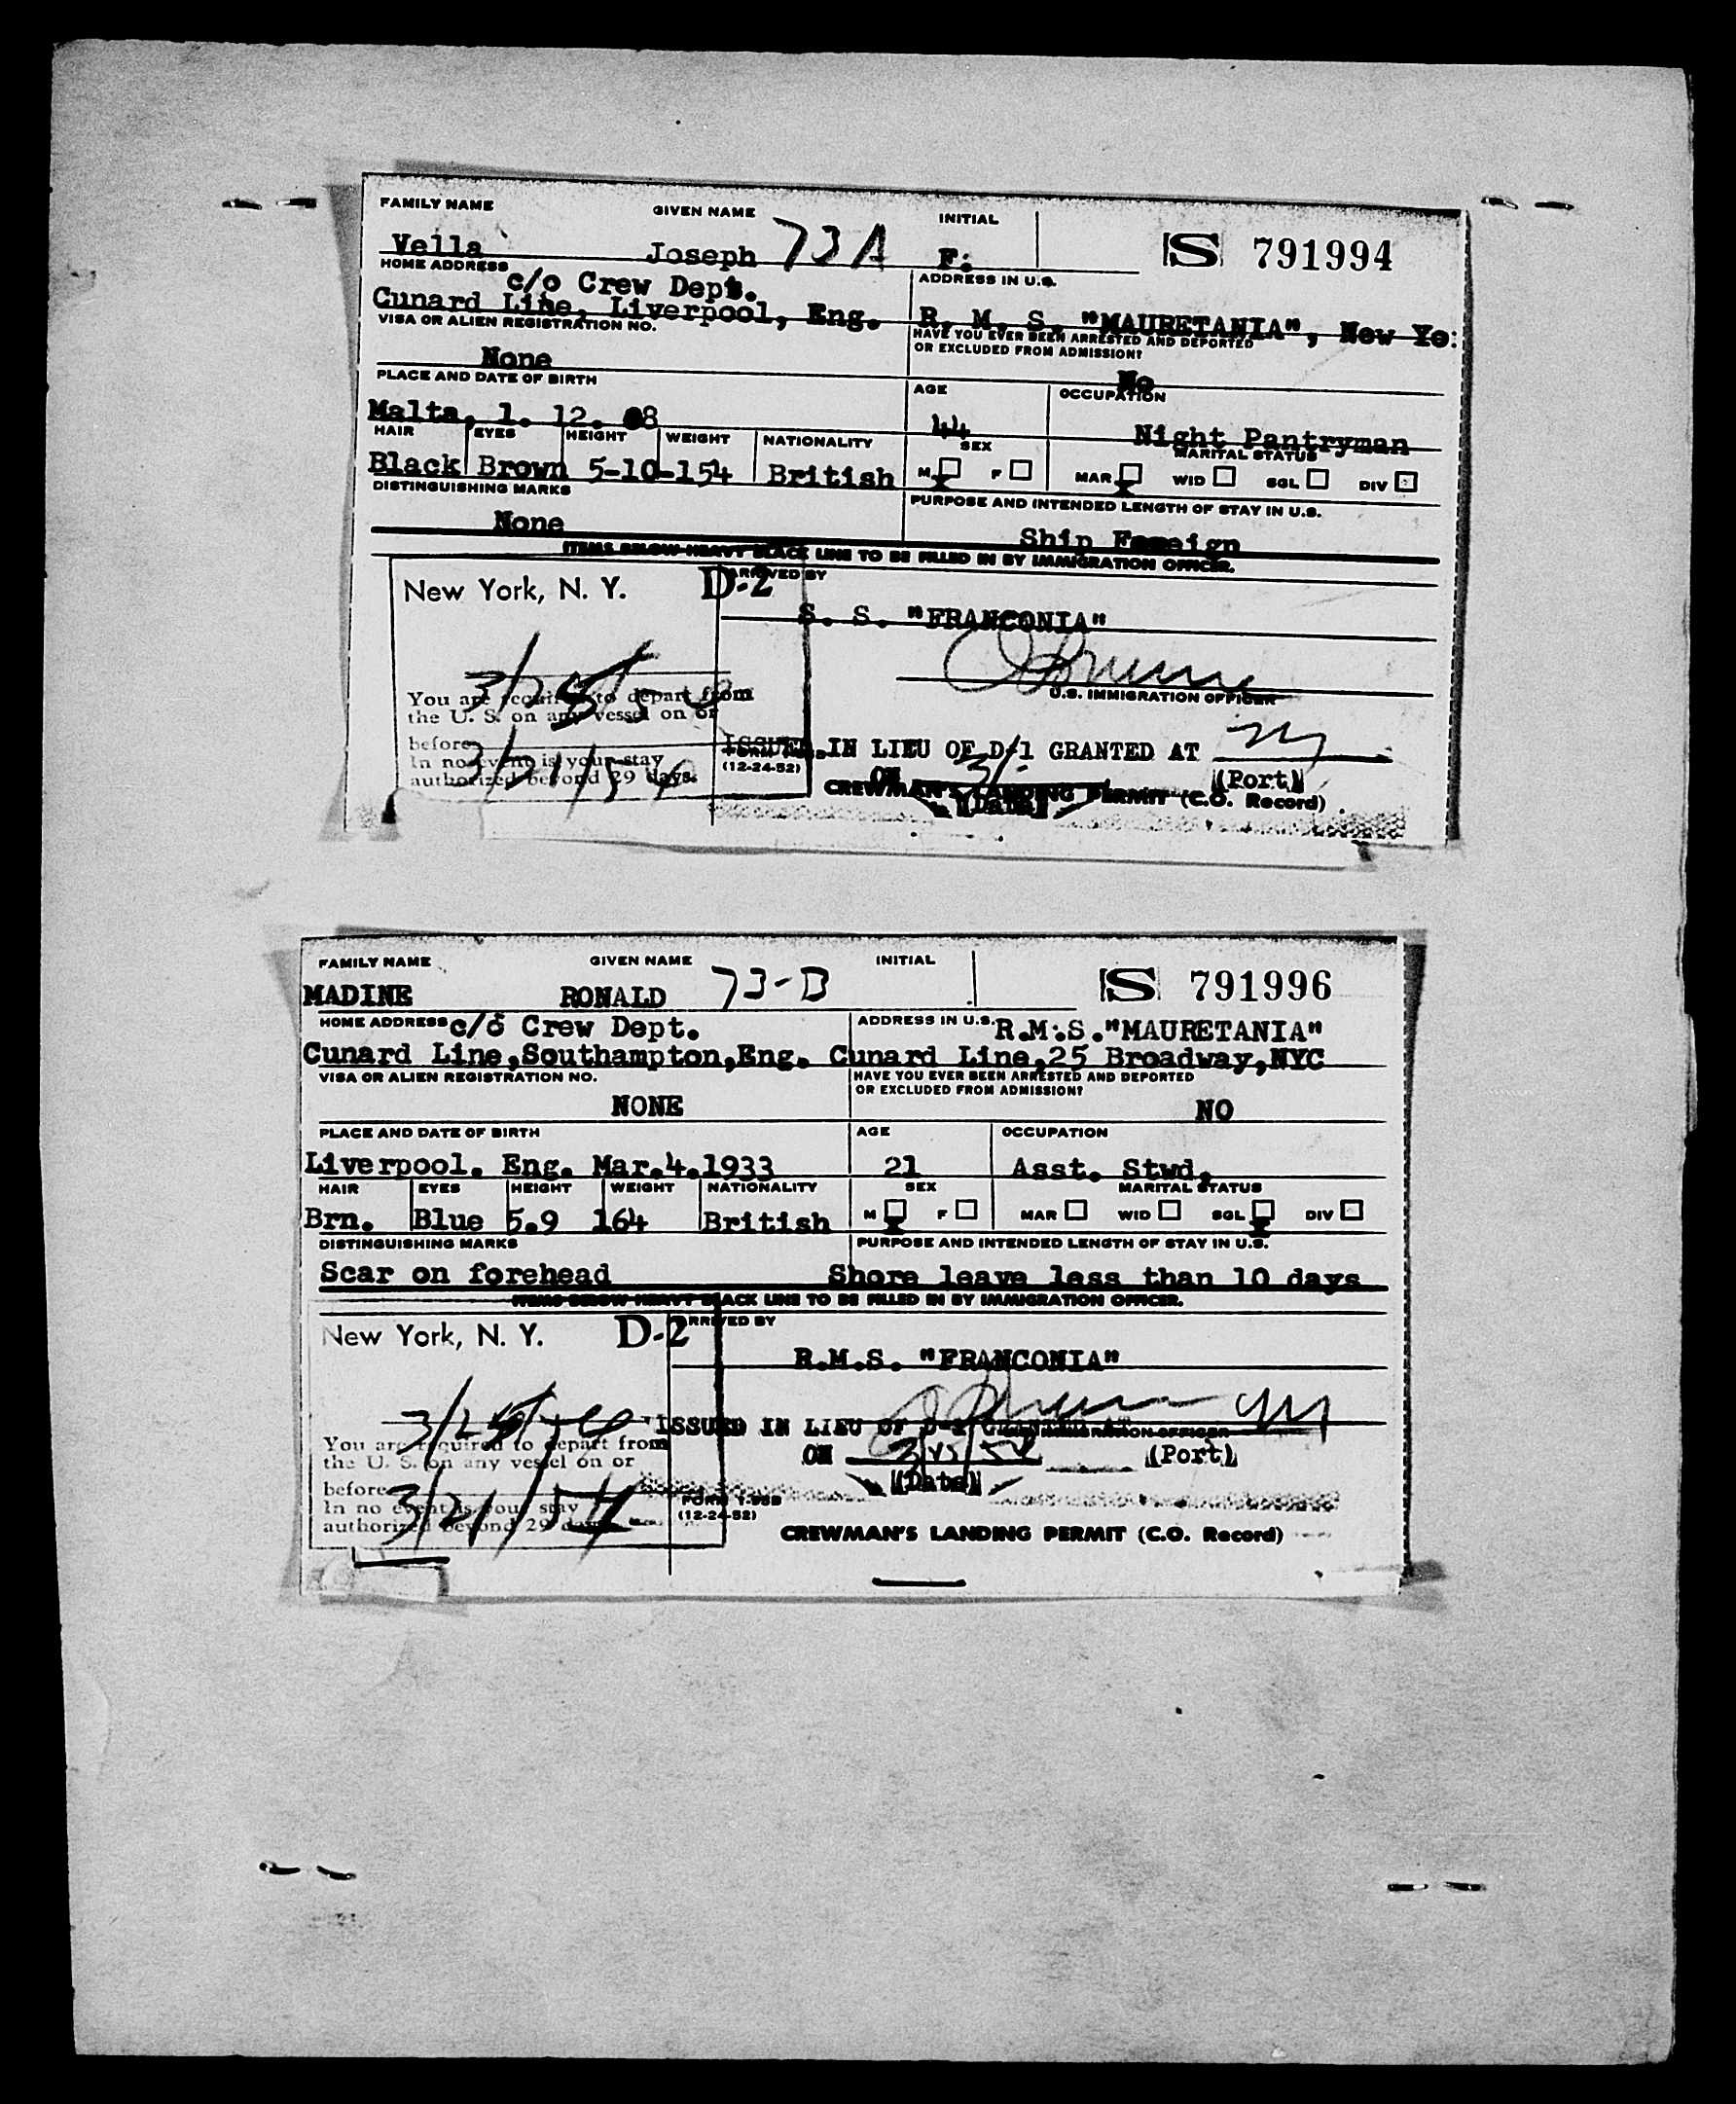 FAMILY NAME GIVEN NAME INITIAL
Vella Joseph 73A F. S 791994
HOME ADDRESS ADDRESS IN U.S.
c/o Crew Dept.
Cunard Line, Liverpool, Eng. R. M. S. "MAURETANIA", New Yo:
VISA OR ALIEN REGISTRATION NO. HAVE YOU EVER BEEN ARRESTED AND DEPORTED
OR EXCLUDED FROM ADMISSION?
None No
PLACE AND DATE OF BIRTH AGE OCCUPATION
Malta, 1. 12. 44 Night Pantryman
HAIR EYES HEIGHT WEIGHT NATIONALITY SEX MARITAL STATUS
Black Brown 5-10-154 British M F MAR WID SGL DIV
DISTINGUISHING MARKS PURPOSE AND INTENDED LENGTH OF STAY IN U.S.
None Ship Foreign
ITEMS BELOW HEAVY BLACK LINE TO BE FILLED IN BY IMMIGRATION OFFICER.
New York, N. Y. D-2 ARRIVED BY
S. S. "FRANCONIA"
U.S. IMMIGRATION OFFICER
You are required to depart from
the U. S. on any vessel on or
before
In no event is your stay
authorized beyond 29 days.
ISSUED IN LIEU OF D-1 GRANTED AT NY
(12-24-52) ON (Port)
CREWMAN'S LANDING PERMIT (C.O. Record)
(Date)
FAMILY NAME GIVEN NAME INITIAL
MADINE RONALD 73-B S 791996
HOME ADDRESS c/o Crew Dept. ADDRESS IN U.S. R.M.S."MAURETANIA"
Cunard Line,Southampton,Eng. Cunard Line,25 Broadway,NYC
VISA OR ALIEN REGISTRATION NO. HAVE YOU EVER BEEN ARRESTED AND DEPORTED
OR EXCLUDED FROM ADMISSION?
NONE NO
PLACE AND DATE OF BIRTH AGE OCCUPATION
Liverpool. Eng. Mar.4.1933 21 Asst. Stwd.
HAIR EYES HEIGHT WEIGHT NATIONALITY SEX MARITAL STATUS
Brn. Blue 5.9 164 British M F MAR WID SGL DIV
DISTINGUISHING MARKS PURPOSE AND INTENDED LENGTH OF STAY IN U.S.
Scar on forehead Shore leave less than 10 days
ITEMS BELOW HEAVY BLACK LINE TO BE FILLED IN BY IMMIGRATION OFFICER.
New York, N. Y. D-2 ARRIVED BY
R.M.S. "FRANCONIA"
ISSUED IN LIEU OF D-1 GRANTED AT NY
You are required to depart from
the U. S. on any vessel on or
ON (Port)
(Date)
before 3/21/54
In no event is your stay
authorized beyond 29 days
(12-24-52)
CREWMAN'S LANDING PERMIT (C.O. Record)